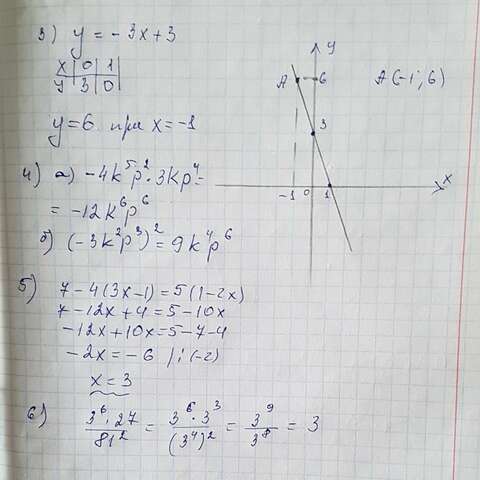 3) y = -3x+3
x | 0 | 1
y | 3 | 0
y=6 при x=-1
y
A
6
A(-1; 6)
3
-1 0 1 x
4) а) -4k⁵p²·3kp⁴=
= -12k⁶p⁶
б) (-3k²p³)² = 9k⁴p⁶
5) 7-4(3x-1)=5(1-2x)
7-12x+4=5-10x
-12x+10x=5-7-4
-2x=-6 |:(-2)
x=3
6) 3⁶·27/81² = 3⁶·3³/(3⁴)² = 3⁹/3⁸ = 3